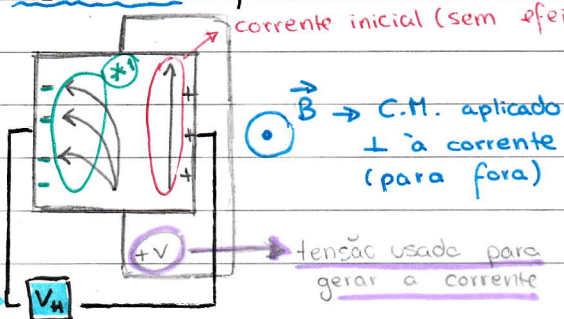 corrente inicial (sem efei
*1
B → C.M. aplicado
⊥ à corrente
(para fora)
- - - -
+ + +
+V
tensão usada para
gerar a corrente
VH